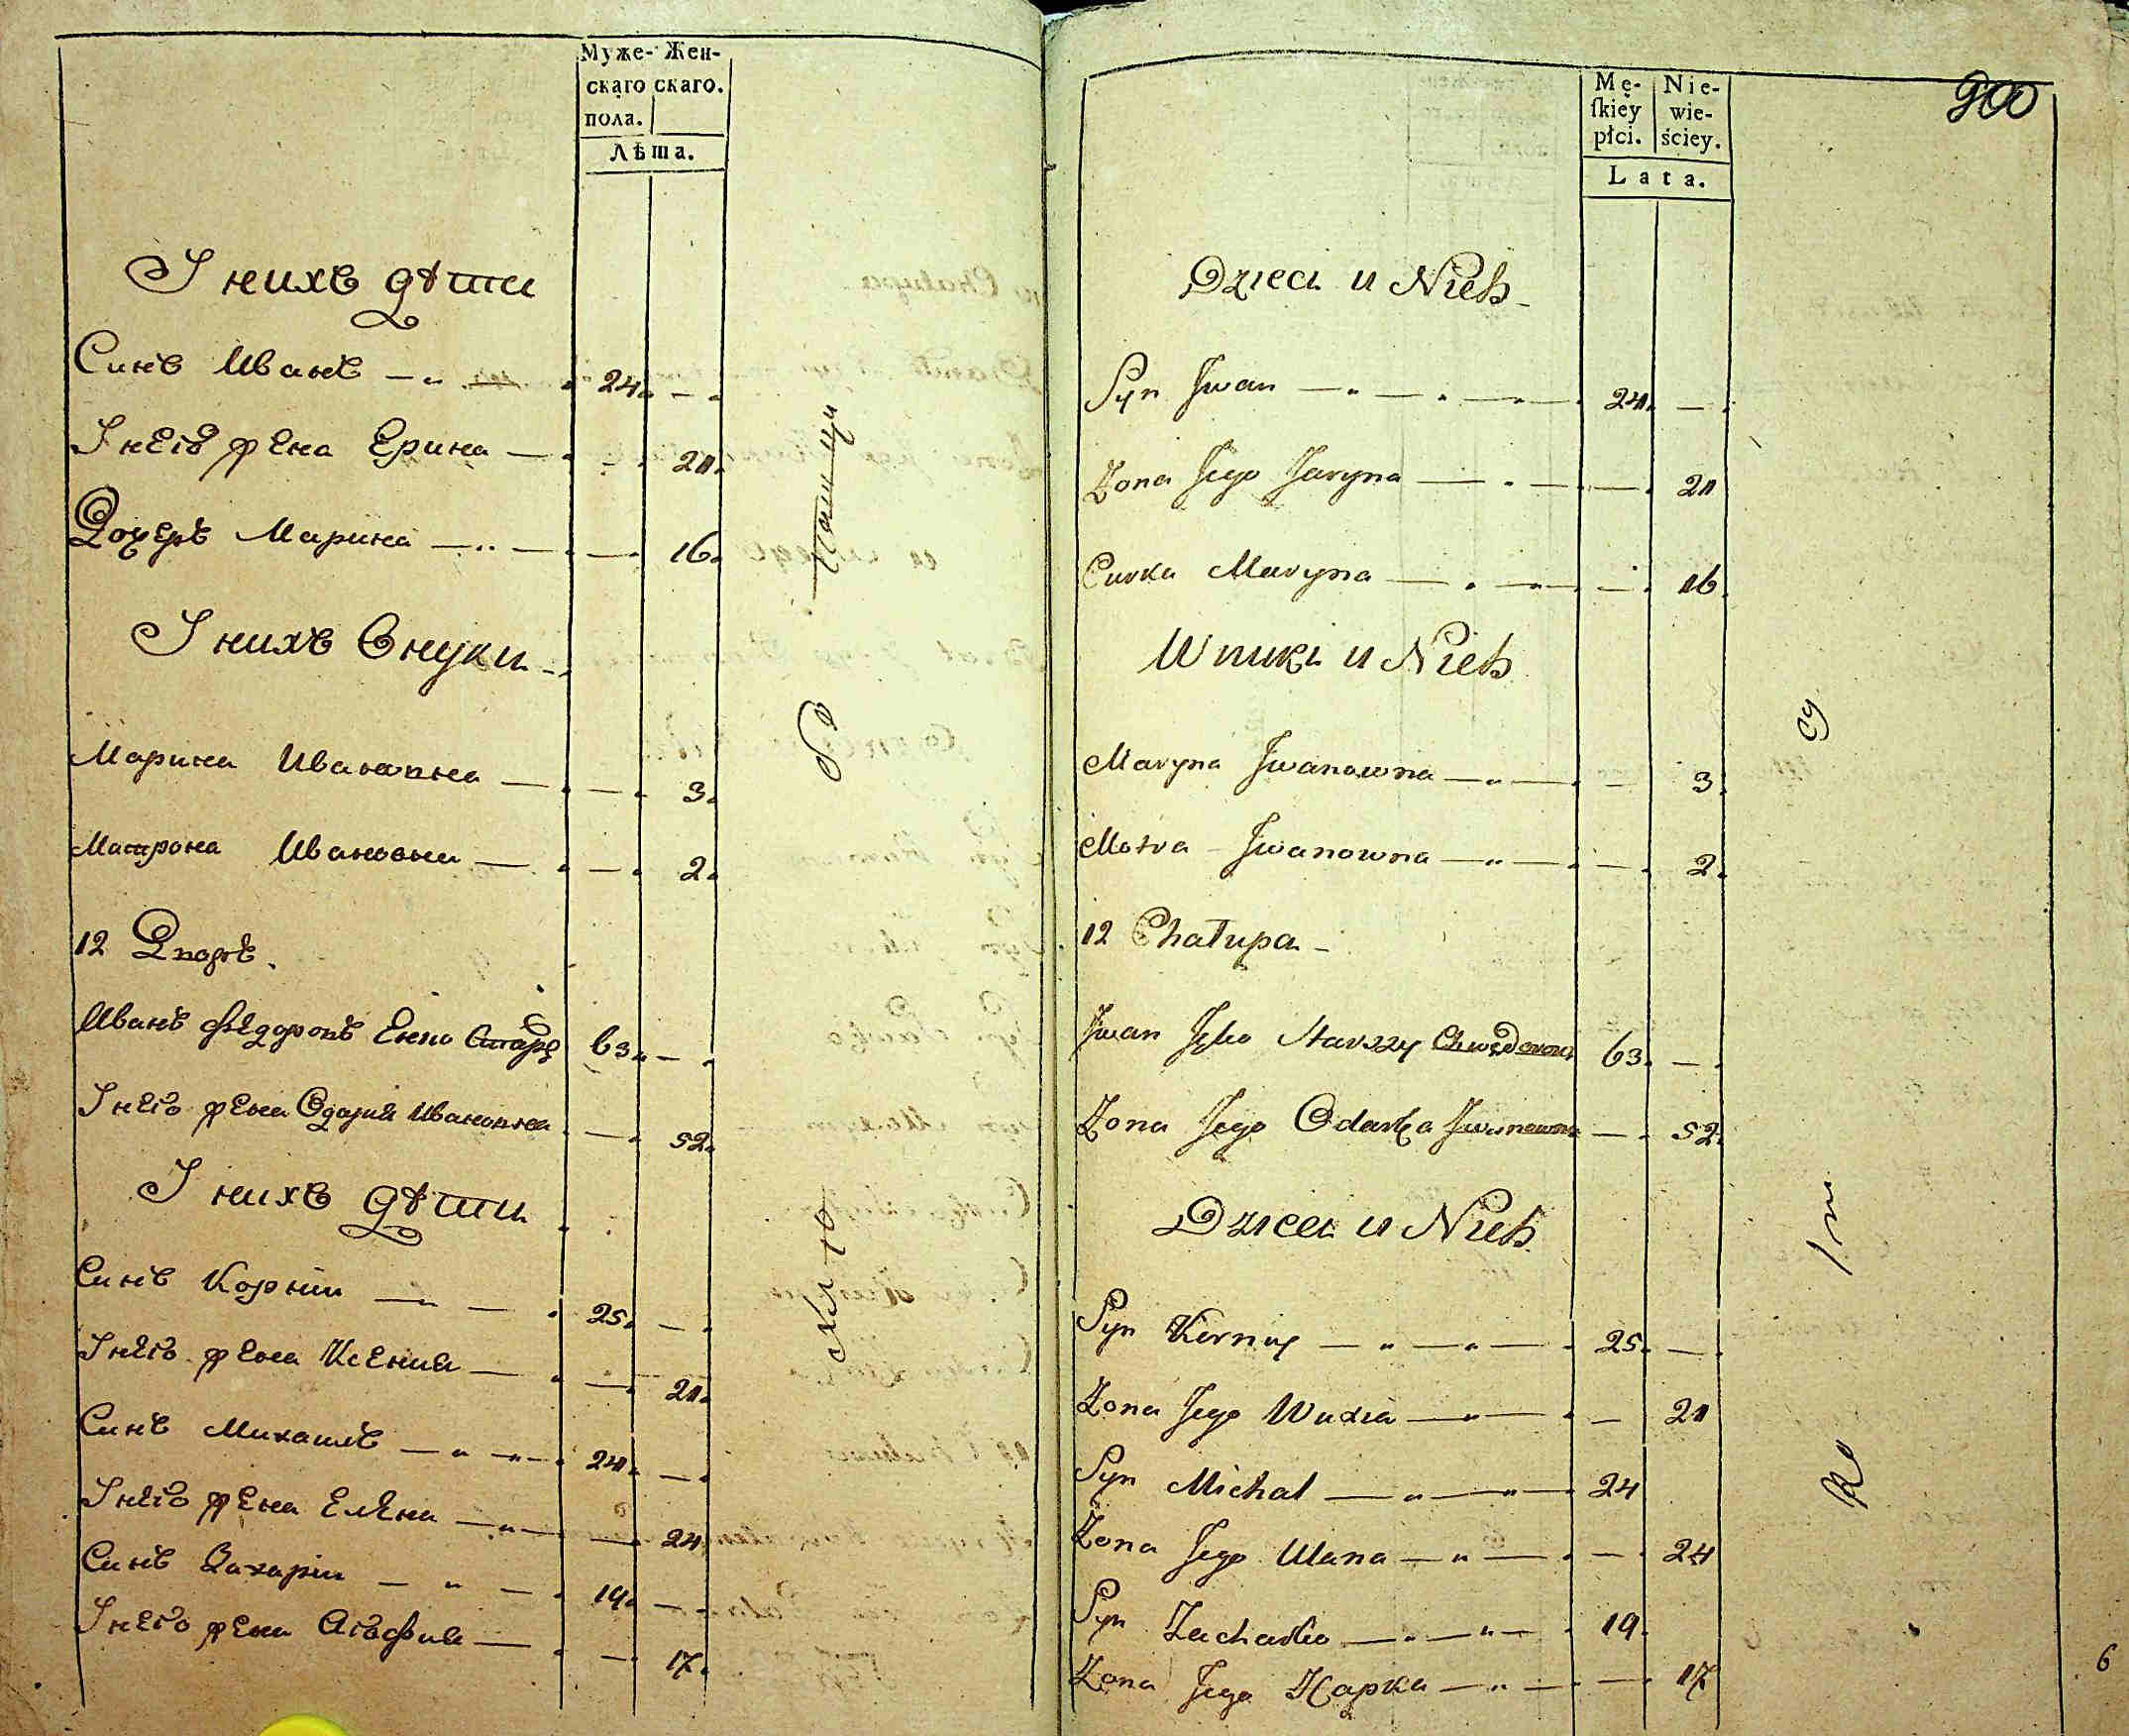 Муже- Жен-
скаго скаго.
пола.
Лѣта.
У нихъ дѣти
Синъ Иванъ 24
У него жена Ерина 21
Дочеръ Марина 16
У нихъ Внуки
Марина Ивановна 3
Матрона Ивановна 2
12 Дворъ
Иванъ Федоровъ 63
У него жена Одария Ивановна 52
У нихъ дѣти
Синъ Корнии 25
У него жена Ксения 21
Синъ Михаилъ 24
У него жена Елена 24
Синъ Захарии 19
У него жена Агафия 17
900
Mę- Nie-
ſkiey wie-
płci. ściey.
Lata.
Dzieci u Nich
Syn Jwan 24
Zona Jego Jaryna 21
Curka Maryna 16
Wnuki u Nich
Maryna Jwanowna 3
Motra Jwanowna 2
12 Chałupa
Jwan Starszy 63
Zona Jego Odarka Jwanowna 52
Dzieci u Nich
Syn Korniy 25
Zona Jego 21
Syn Michał 24
Zona Jego Ulana 24
Syn Zacharko 19
Zona Jego Хapka 17
6